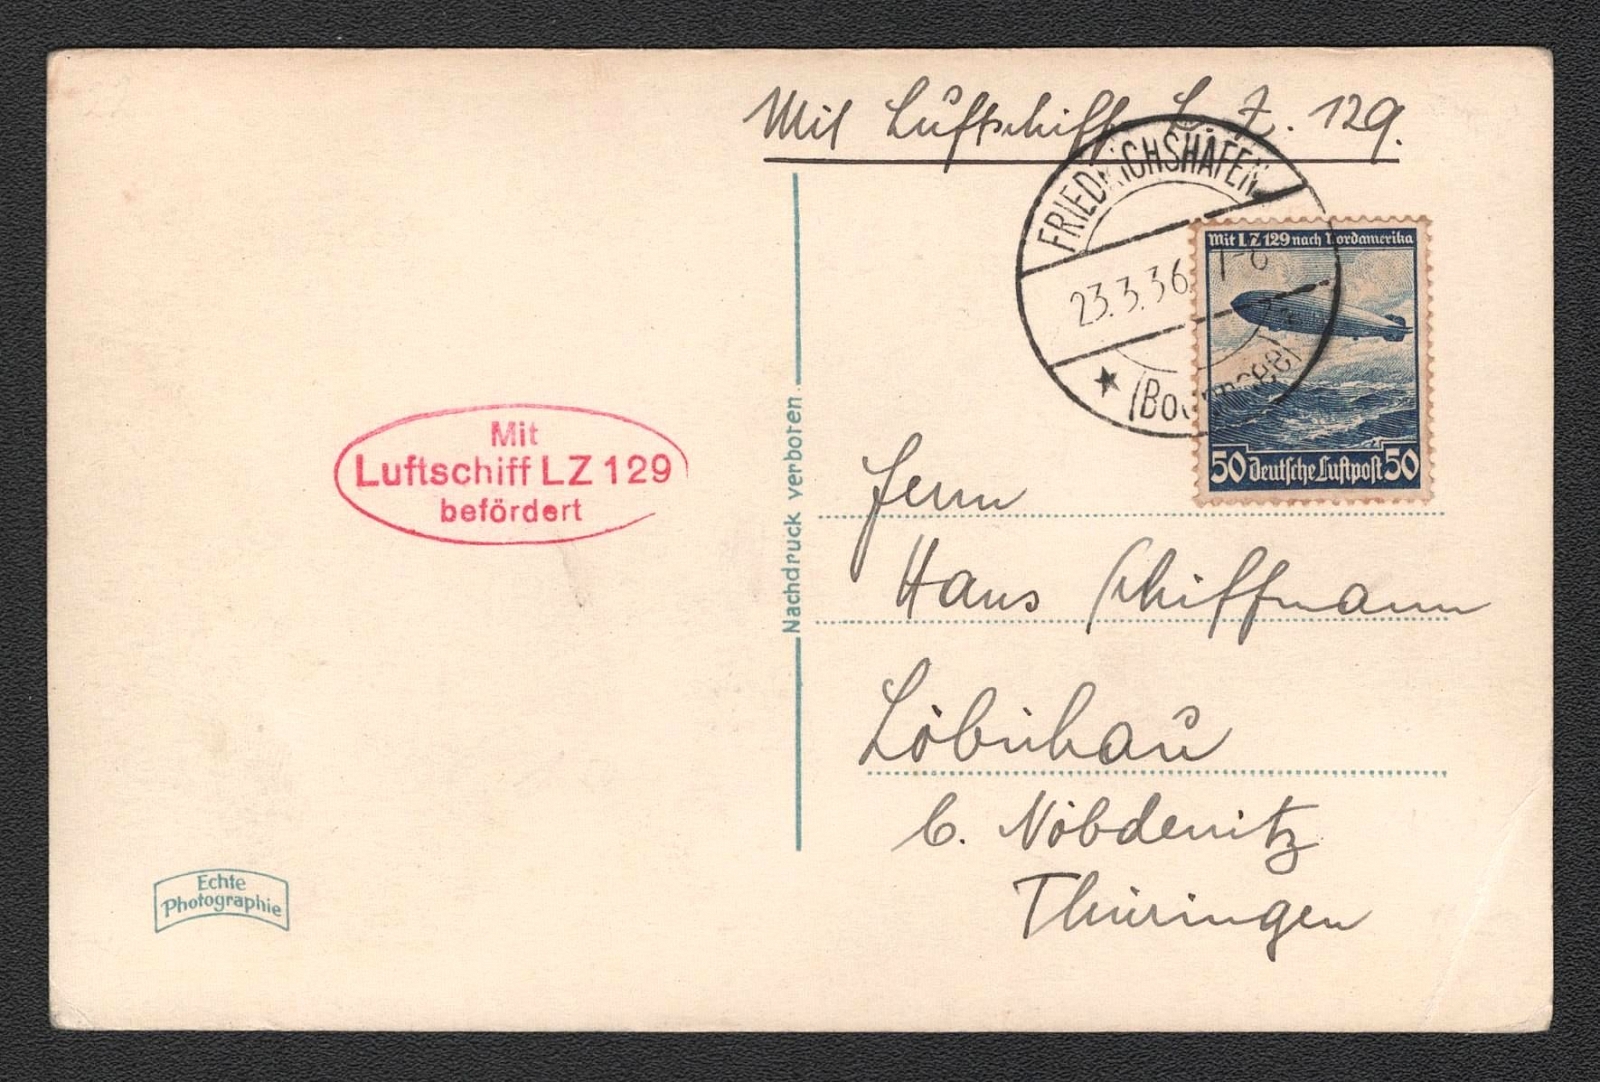 Mit Luftschiff L. Z. 129.
FRIEDRICHSHAFEN
23.3.36
(Bodensee)
Mit LZ 129 nach Nordamerika
50 Deutsche Luftpost 50
Mit
Luftschiff LZ 129
befördert
Nachdruck verboten
Herrn
Hans Schiffmann
Löbichau
b. Nöbdenitz
Thüringen
Echte
Photographie